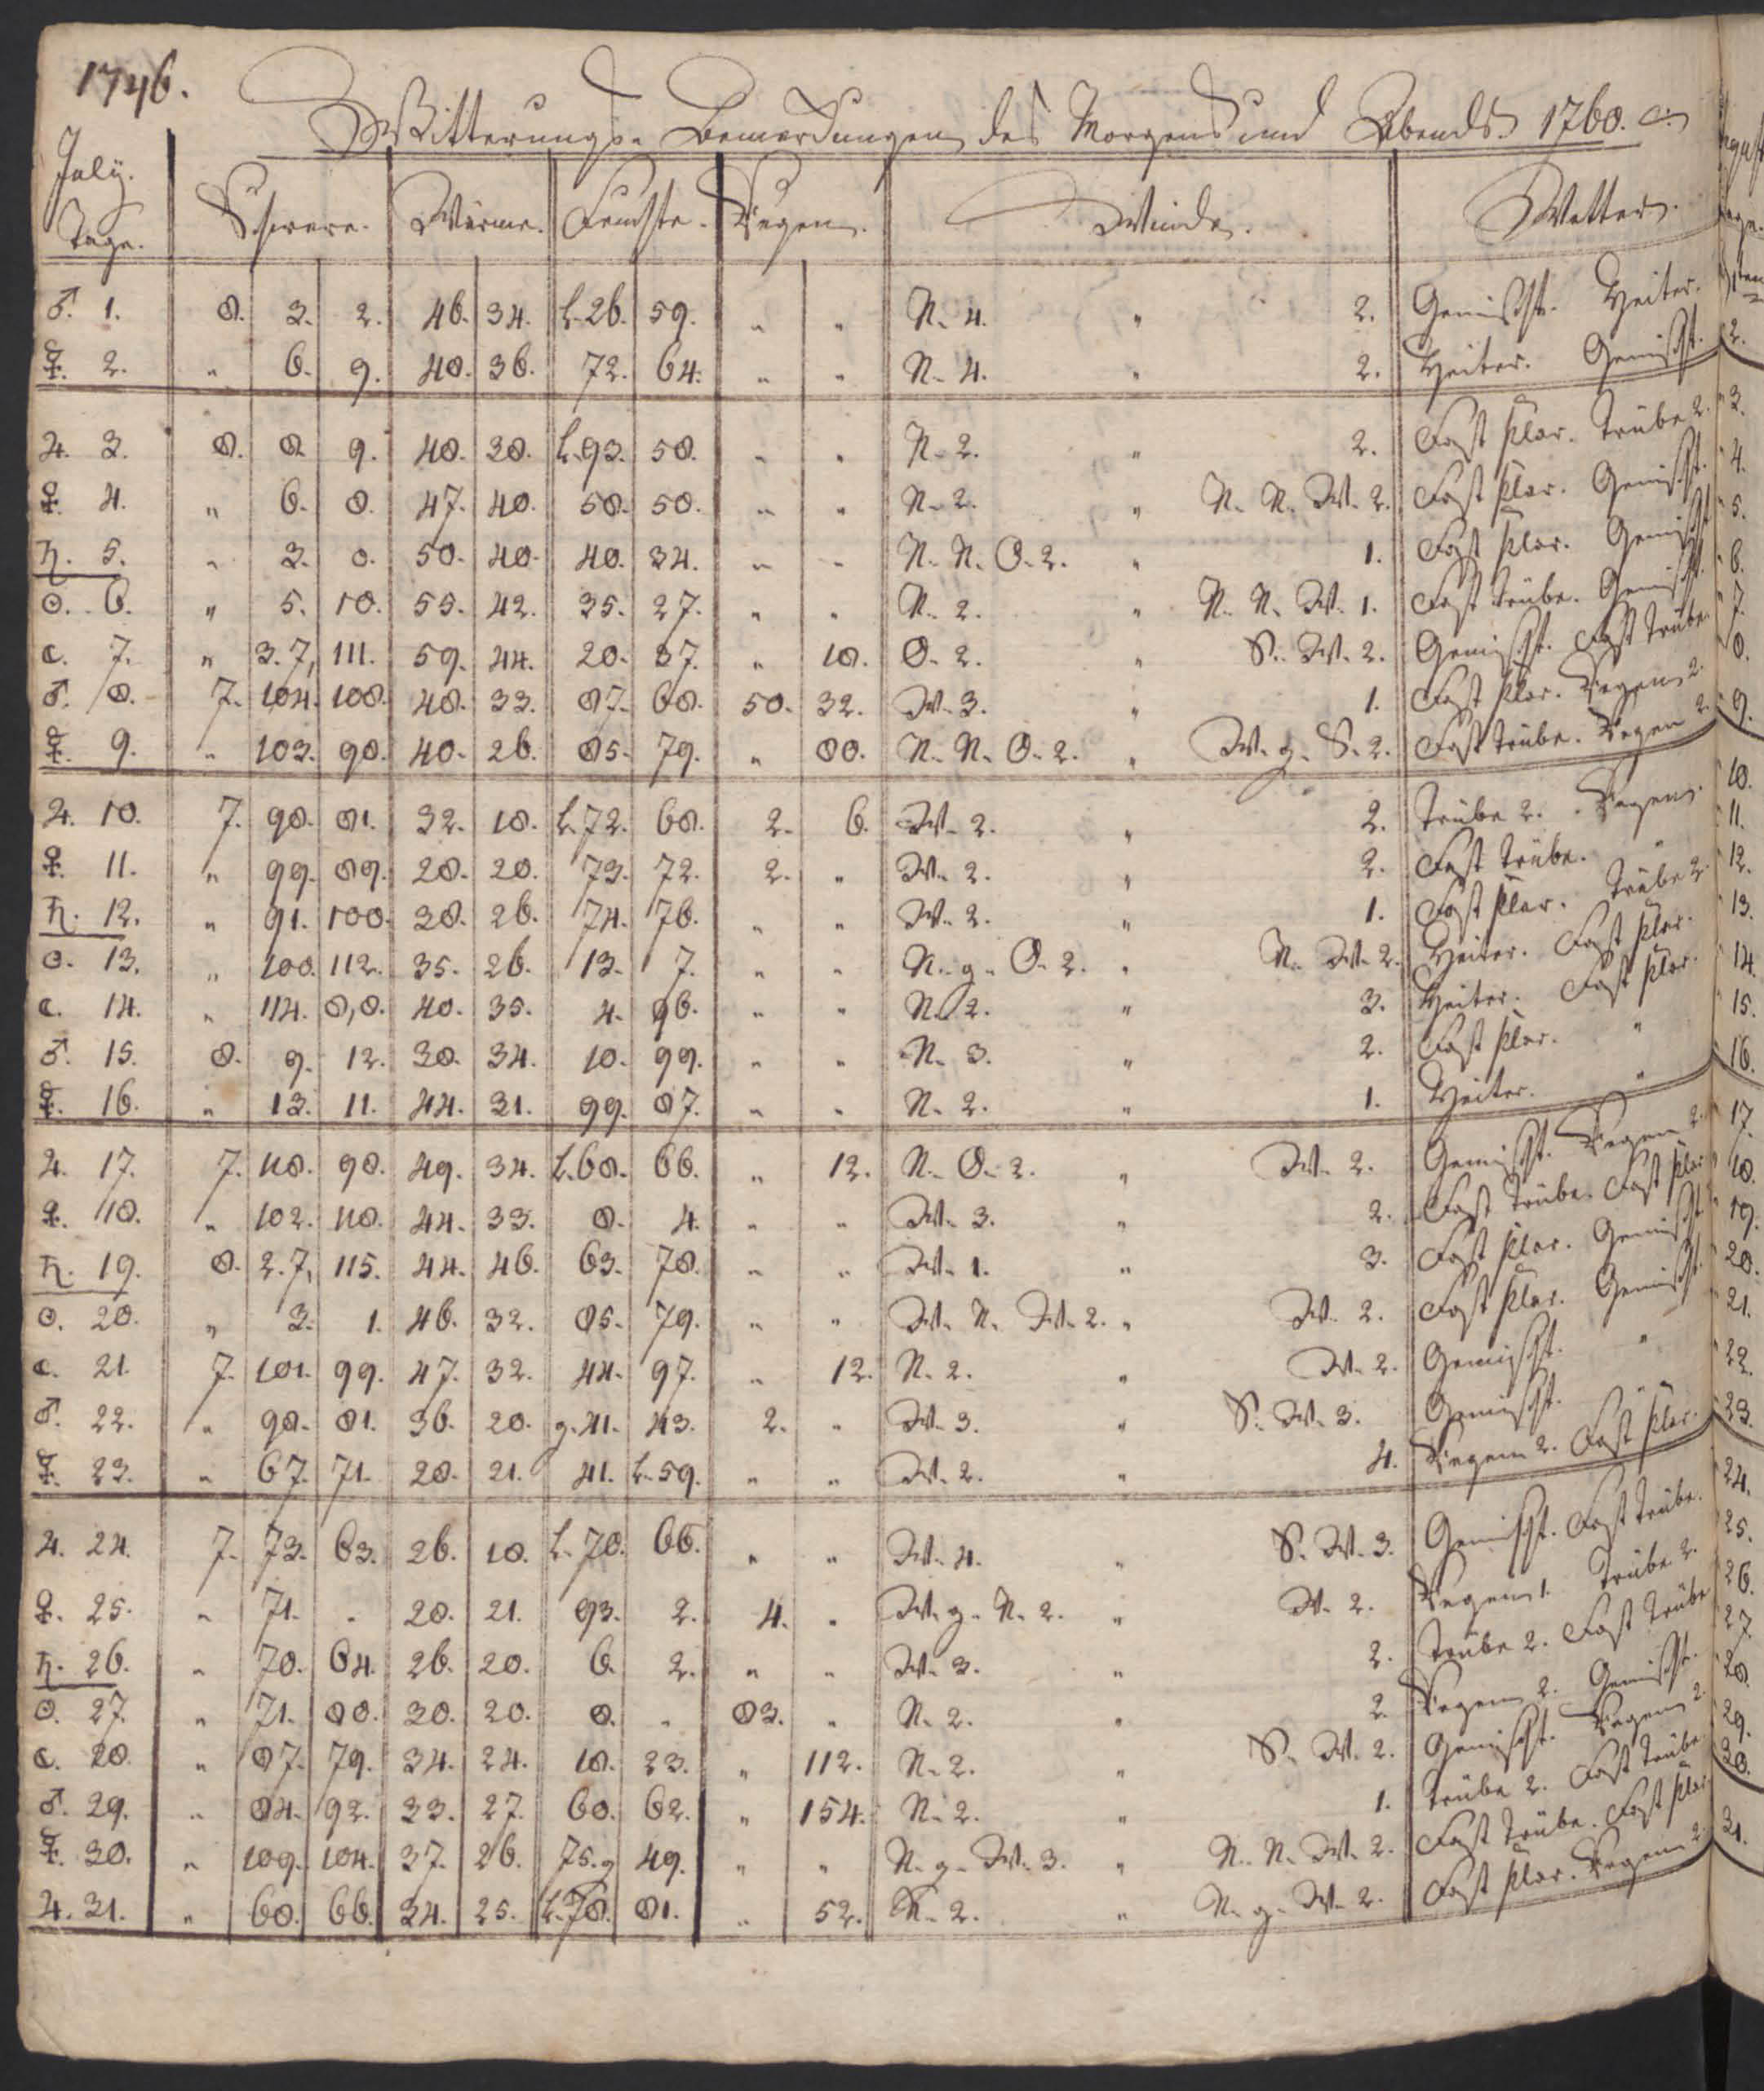 1746.
Witterungs- Bemerckungen des Morgens und Abends. 1760.
July.
Tage. Schwere. Wärme. Feuchte. Regen. Winde. Wetter.
♂. 1. 8. 3. 2. 46. 34. L. 26. 59. " " N. 4. " 2. Gemischt. Heiter.
☿. 2. " 6. 9. 48. 36. 72. 64. " " N. 4. " 2. Heiter. Gemischt.
♃. 3. 8. 8. 9. 48. 38. L. 93. 58. " " N. 2. " 2. Fast klar. Trübe 2.
♀. 4. " 6. 8. 47. 40. 58. 50. " " N. 2. " N. N. W. 2. Fast klar. Gemischt.
♄. 5. " 3. 0. 50. 40. 40. 34. " " N. N. O. 2. " 1. Fast klar. Gemischt
☉. 6. " 5. 10. 55. 42. 35. 27. " " N. 2. " N. N. W. 1. Fast trübe. Gemischt.
☾. 7. " 3. 7, 111. 59. 44. 20. 37. " 18. O. 2. " S. W. 2. Gemischt. Fast trübe.
♂. 8. 7. 104. 108. 48. 33. 87. 68. 50. 32. W. 3. " 1. Fast klar. Regen 2.
☿. 9. " 103. 98. 40. 26. 85. 79. " 80. N. N. O. 2. " W. g. S. 2. Fast trübe. Regen 2.
♃. 10. 7. 98. 81. 32. 18. L. 72. 68. 2. 6. W. 2. " 2. Trübe 2. Regen.
♀. 11. " 99. 89. 28. 20. 73. 72. 2. " W. 2. " 2. Fast trübe. "
♄. 12. " 91. 100. 38. 26. 74. 76. " " W. 2. " 1. Fast klar. Trübe 2.
☉. 13. " 100. 112. 35. 26. 13. 7. " " N. g. O. 2. " N. W. 2. Heiter. Fast klar.
☾. 14. " 114. 8, 8. 40. 35. 4. 96. " " N. 2. " 3. Heiter. Fast klar.
♂. 15. 8. 9. 12. 38. 34. 10. 99. " " N. 3. " 2. Fast klar. "
☿. 16. " 13. 11. 44. 31. 99. 87. " " N. 2. " 1. Heiter. "
♃. 17. 7. 118. 98. 49. 34. L. 68. 66. " 12. N. O. 2. " W. 2. Gemischt. Regen 2.
♀. 18. " 102. 118. 44. 33. 8. 4. " " W. 3. " 2. Fast trübe. Fast klar
♄. 19. 8. 2. 7, 115. 44. 46. 63. 78. " " W. 1. " 3. Fast klar. Gemischt
☉. 20. " 3. 1. 46. 32. 85. 79. " " W. N. W. 2. " W. 2. Fast klar. Gemischt.
☾. 21. 7. 101. 99. 47. 32. 44. 97. " 12. N. 2. " W. 2. Gemischt. "
♂. 22. " 98. 81. 36. 20. g. 41. 43. 2. " W. 3. " S. W. 3. Gemischt. "
☿. 23. " 67. 71. 28. 21. 41. L. 59. " " W. 2. " 4. Regen 2. Fast klar.
♃. 24. 7. 73. 63. 26. 18. L. 70. 66. " " W. 4. " S. W. 3. Gemischt. Fast trübe.
♀. 25. " 71. " 28. 21. 93. 2. 4. " W. g. N. 2. " W. 2. Regen 1. Trübe 2.
♄. 26. " 70. 64. 26. 20. 6. 2. " " W. 3. " 2. Trübe 2. Fast trübe
☉. 27. " 71. 80. 30. 20. 8. " 83. " N. 2. " 2. Regen 2. Gemischt.
☾. 28. " 87. 79. 34. 24. 18. 23. " 112. N. 2. " S. W. 2. Gemischt. Regen 2.
♂. 29. " 84. 92. 33. 27. 60. 62. " 154. N. 2. " 1. Trübe 2. Fast trübe
☿. 30. " 109. 104. 37. 26. 75. g 49. " " N. g. W. 3. " N. N. W. 2. Fast trübe. Fast klar
♃. 31. " 60. 66. 34. 25. L. 78. 81. " 52. N. 2. " N. g. W. 2. Fast klar. Regen 2.